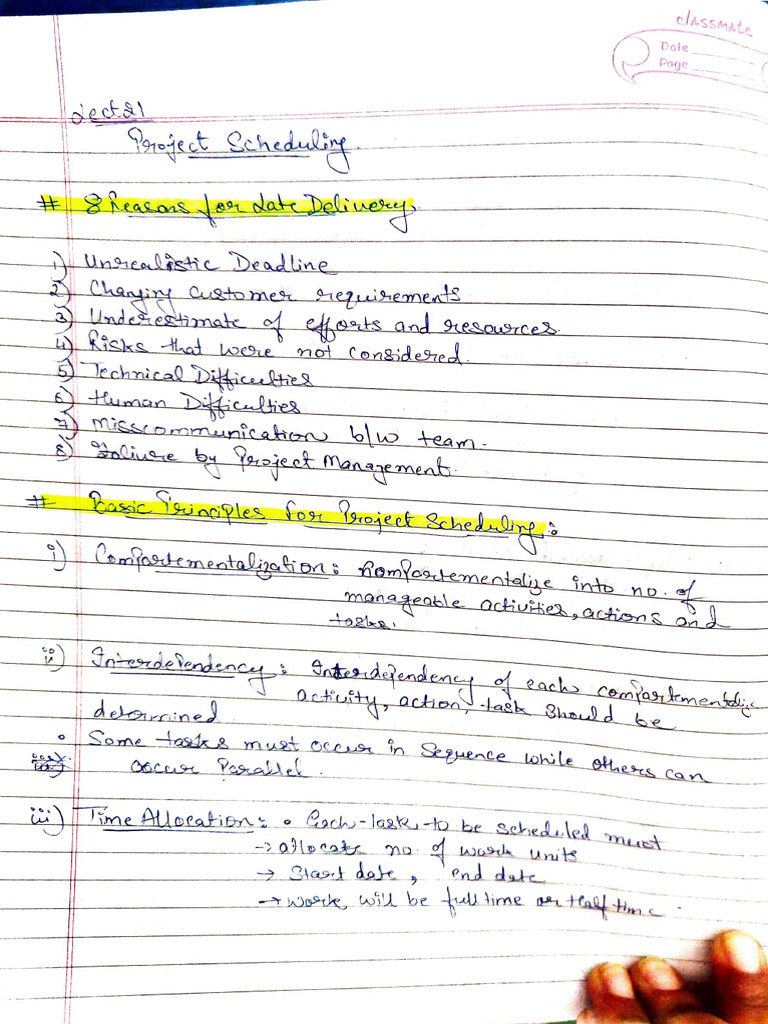 classmate
Date
Page
Lect.21
Project Scheduling.
# 8 Reasons for Late Delivery.
1) Unrealistic Deadline
2) Changing customer requirements
3) Underestimate of efforts and resources.
4) Risks that were not considered.
5) Technical Difficulties
6) Human Difficulties
7) Misscommunication b/w team.
8) Faliure by Project Management.
# Basic Principles for Project Scheduling:
i) Compartementalization: Compartementalize into no. of
manageable activities, actions and
tasks.
ii) Interdependency: Interdependency of each compartmentalize
activity, action, task should be
determined
• Some tasks must occur in sequence while others can
occur Parallel.
iii) Time Allocation: • Each task to be scheduled must
→ allocate no. of work units
→ Start date, end date
→ work will be full time or half time.